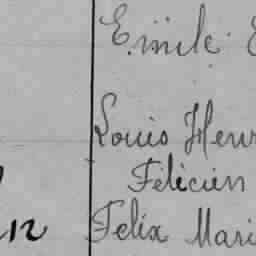 Emile
Louis Henr
Félicien
12 Felix Mari